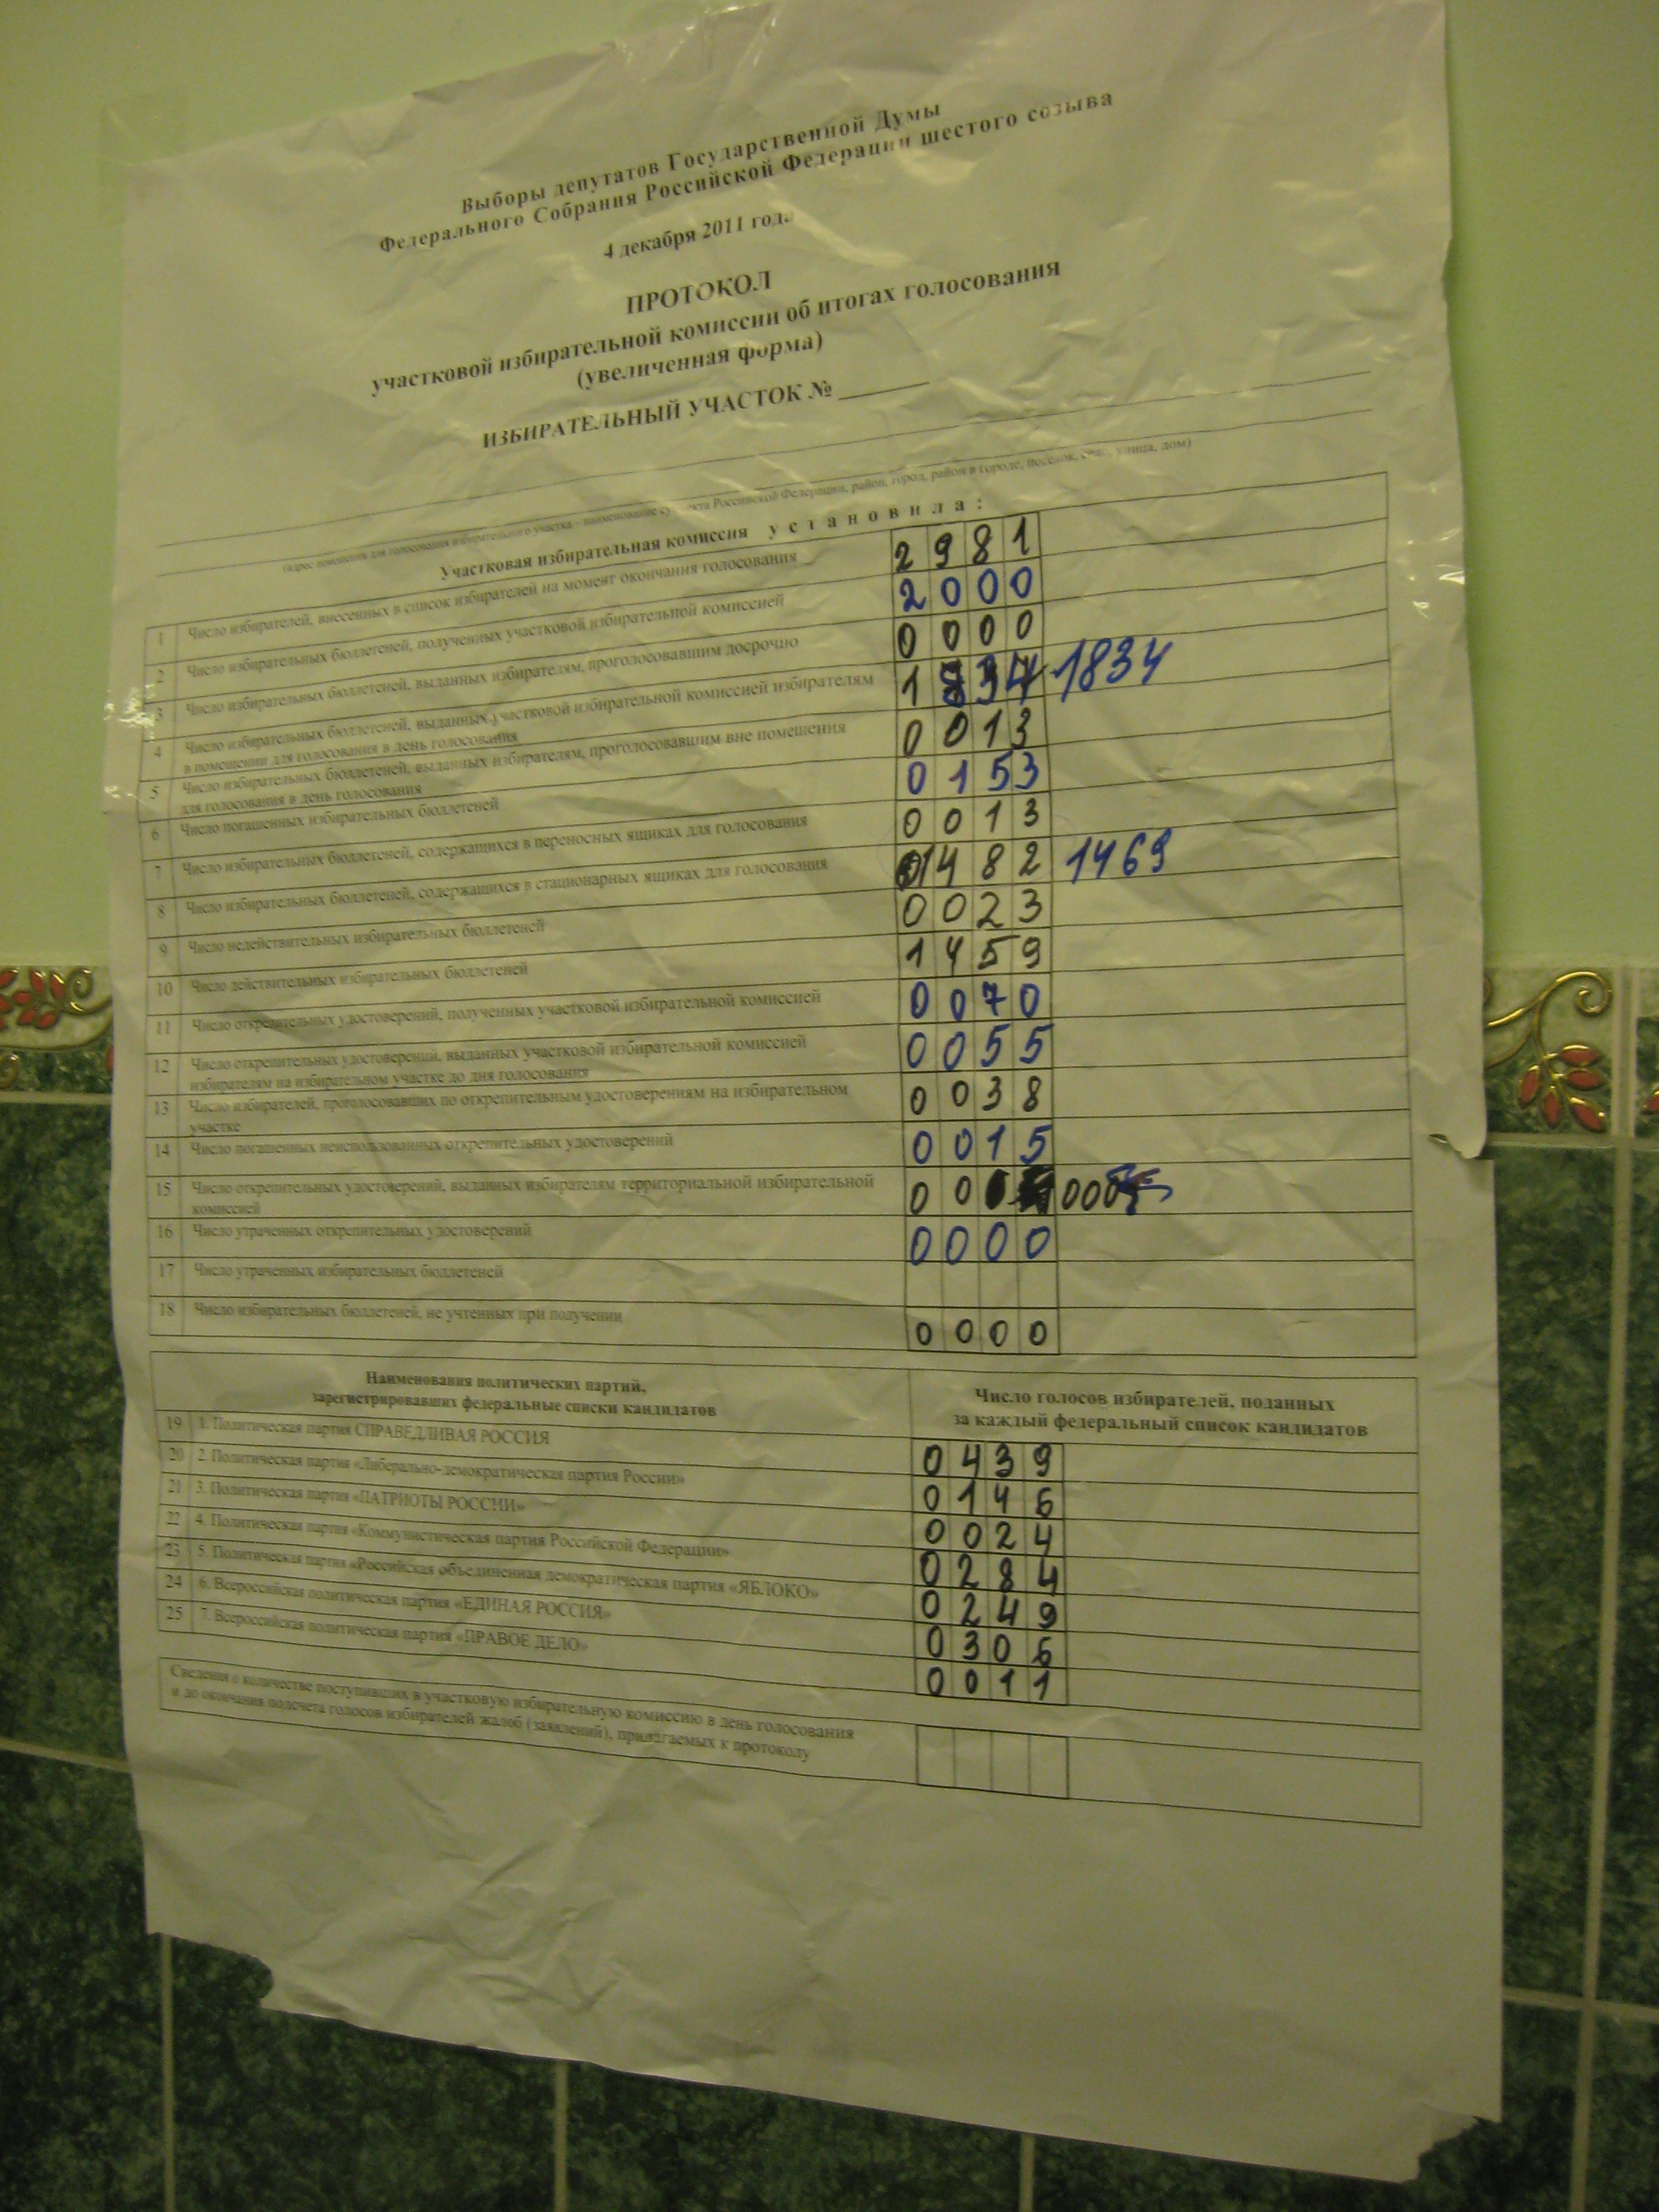 Выборы депутатов Государственной Думы
Федерального Собрания Российской Федерации шестого созыва
4 декабря 2011 год
ПРОТОКОЛ
участковой избирательной комиссии об итогах голосования
(увеличенная форма)
ИЗБИРАТЕЛЬНЫЙ УЧАСТОК №
(адрес помещения для голосования избирательного участка – наименование субъекта Российской Федерации, район, город, район в городе, поселок, село, улица, дом)
Участковая избирательная комиссия установила:
1 Число избирателей, внесенных в список избирателей на момент окончания голосования 2981
2 Число избирательных бюллетеней, полученных участковой избирательной комиссией 2000
3 Число избирательных бюллетеней, выданных избирателям, проголосовавшим досрочно 0000
4 Число избирательных бюллетеней, выданных участковой избирательной комиссией избирателям
в помещении для голосования в день голосования 1834 1834
5 Число избирательных бюллетеней, выданных избирателям, проголосовавшим вне помещения
для голосования в день голосования 0013
6 Число погашенных избирательных бюллетеней 0153
7 Число избирательных бюллетеней, содержащихся в переносных ящиках для голосования 0013
8 Число избирательных бюллетеней, содержащихся в стационарных ящиках для голосования 1482 1469
9 Число недействительных избирательных бюллетеней 0023
10 Число действительных избирательных бюллетеней 1459
11 Число открепительных удостоверений, полученных участковой избирательной комиссией 0070
12 Число открепительных удостоверений, выданных участковой избирательной комиссией
избирателям на избирательном участке до дня голосования 0055
13 Число избирателей, проголосовавших по открепительным удостоверениям на избирательном
участке 0038
14 Число погашенных неиспользованных открепительных удостоверений 0015
15 Число открепительных удостоверений, выданных избирателям территориальной избирательной
комиссией 00
16 Число утраченных открепительных удостоверений 0000
17 Число утраченных избирательных бюллетеней
18 Число избирательных бюллетеней, не учтенных при получении 0000
Наименования политических партий,
зарегистрировавших федеральные списки кандидатов
Число голосов избирателей, поданных
за каждый федеральный список кандидатов
19 1. Политическая партия СПРАВЕДЛИВАЯ РОССИЯ 0439
20 2. Политическая партия «Либерально-демократическая партия России» 0146
21 3. Политическая партия «ПАТРИОТЫ РОССИИ» 0024
22 4. Политическая партия «Коммунистическая партия Российской Федерации» 0284
23 5. Политическая партия «Российская объединенная демократическая партия «ЯБЛОКО» 0249
24 6. Всероссийская политическая партия «ЕДИНАЯ РОССИЯ» 0306
25 7. Всероссийская политическая партия «ПРАВОЕ ДЕЛО» 0011
Сведения о количестве поступивших в участковую избирательную комиссию в день голосования
и до окончания подсчета голосов избирателей жалоб (заявлений), прилагаемых к протоколу